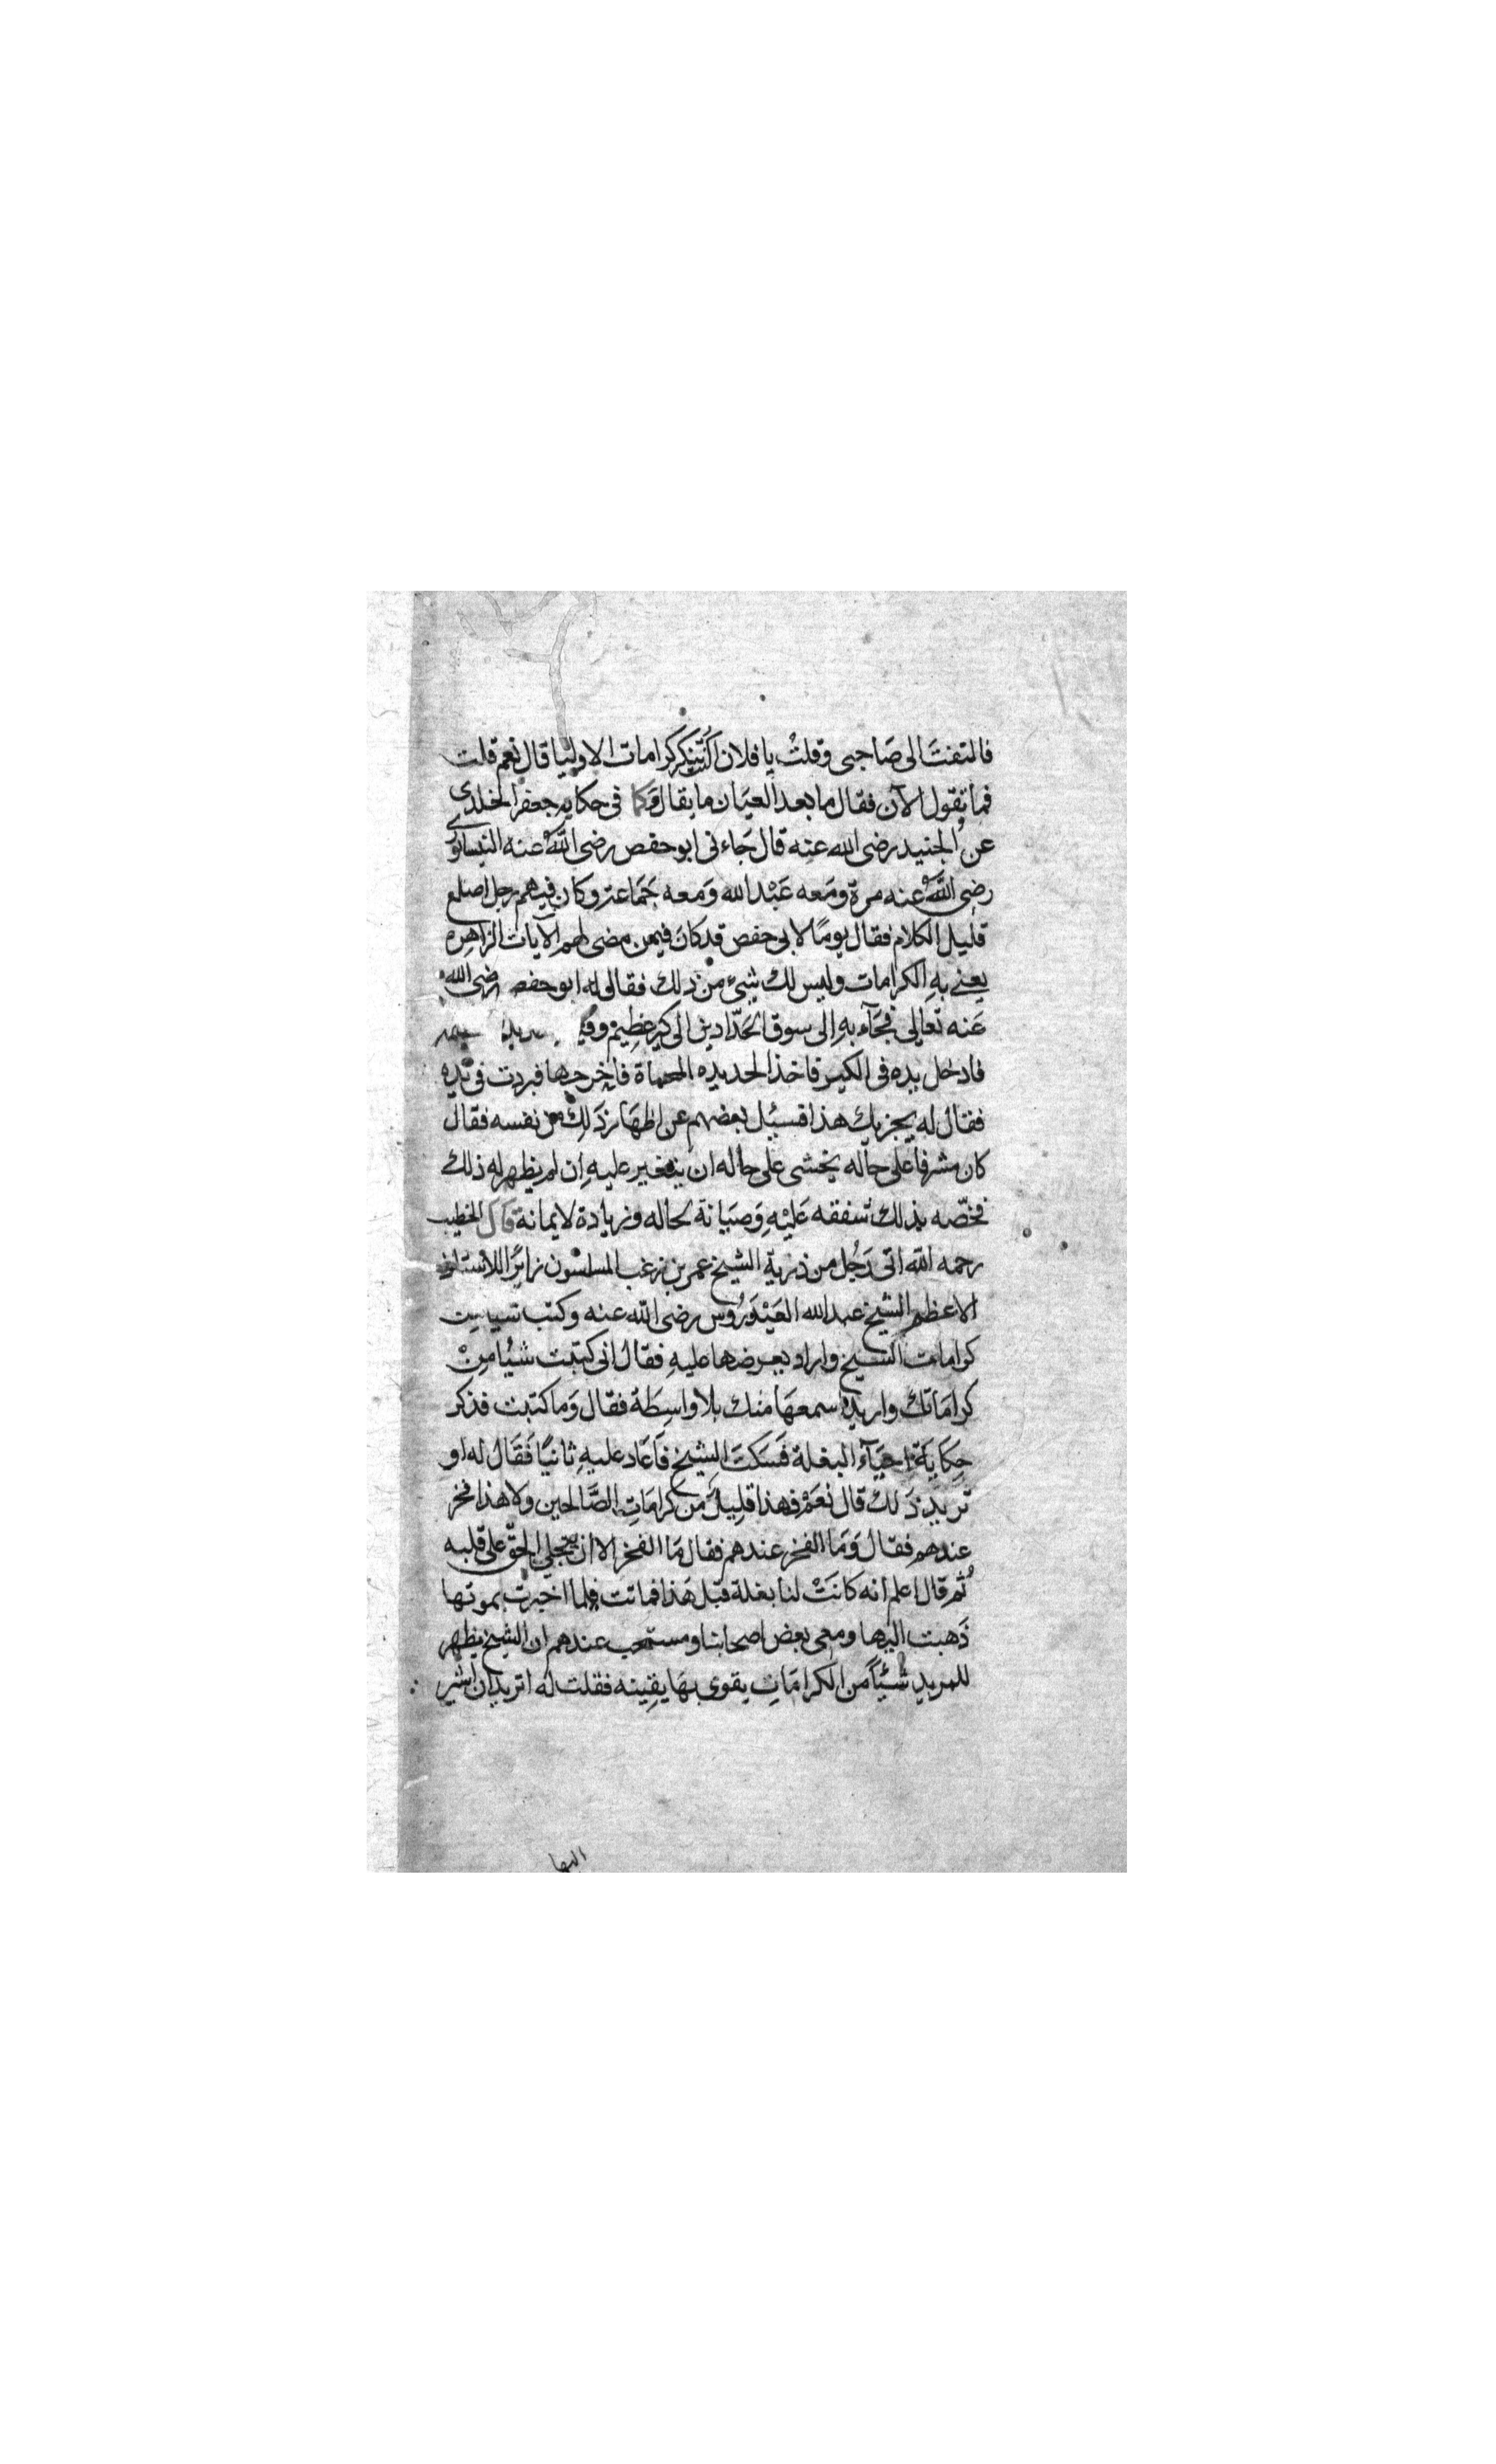 فالتفتَ الى صَاحبى وقلتُ يا فلان أكنت تنكر كرامات الاوليا قال نعم قلت
فما تقول الآن فقال ما بعد العيَان ما يقال وَكما فى حكايه جعفر الخلدى
عن الجنيد رضى الله عنه قال جَاءنى ابو حفص رضى اللّه عنه النيسابورى
رضى اللّه عنه مرة ومَعه عَبْد الله وَمعه جَمَاعة وكان فيهم رجل اصلع
قليل الكلام فقال يومًا لابى حفص قد كان فيمن مضى لهم الآيات الزاهره
يعني بهِ الكرامات وليس لك شىء من ذلك فقال له ابو حفص رضى الله
عَنه تعَالى فجَآء بهِ الى سوق الحَدّادين الى كيرٍ عظِيم
فادخل يده فى الكير فاخذ الحديده المحماة فاخرجها فبردت فى يَدِه
فقال له يجزيك هذا فسيُل بعضهم عن اظهَار ذَلِك من نفسه فقال
كان مشرفاً على حاله يخشى على حاله ان يتغير عليهِ اِن لم يظهر له ذلك
فخصّه بذلك شفقه عَليْهِ وَصيَانة لحاله وزيادة لايمانة قال الخطيب
رحمه اللّه اتى رَجُل من ذرية الشيخ عمر بن زغب المسلسون زايرًا للاستاذ
الاعظم الشيخ عبد الله العَيْدَرُوس رضى اللّه عنه وكتب شيا من
كرامات الشيخ واراد يعرضها عليهِ فقال انى كتبت شيُا مِنْ
كرامَاتك واريد اسمعهَا منك بلا واسِطَة فقال وَما كتبت فذكر
حِكايَة احيَآء البغلة فَسَكتَ الشيخ فَاَعَاد عليهِ ثانيًا فَقَالَ له او
تريد ذَلك قال نعَمْ فهذا قلِيلٌ مِن كرامَاتِ الصَّالحين ولا هذا فخر
عندهم فقال وَمَا الفخر عندهم فقال مَا الفخر الا ان يتجلي الحقّ على قلبه
ثُم قال اعلم انه كانَتْ لنا بغلة قبْل هَذا فماتت فلما اخبرت بموتها
ذَهبت اليها ومعى بعض اصحابنا ومستحب عندهم ان الشيخ يظهر
للمريدِ شيْئًا من الكرامَاتِ يقوى بهَا يقِينه فقلت له اتريد ان اشير
اليها